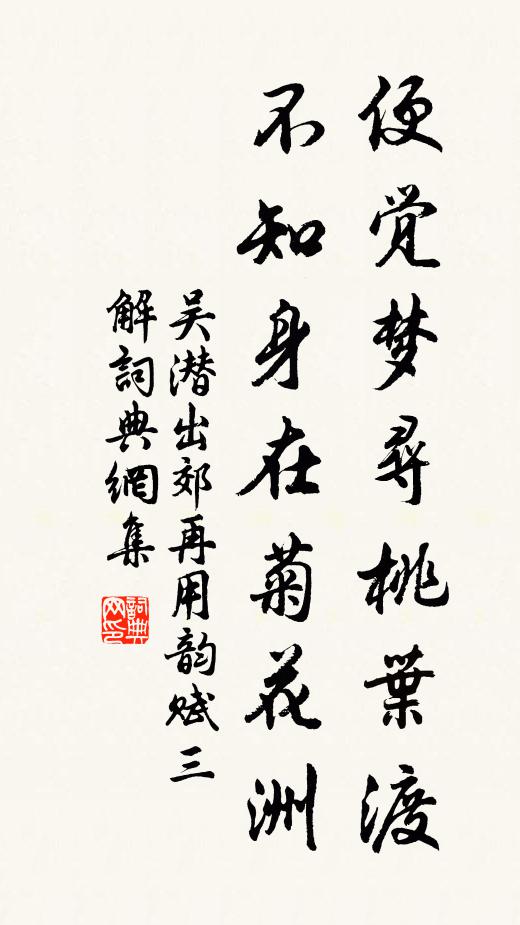 便觉梦尋桃葉渡
不知身在菊花洲
吴潜出郊再用韵赋三
解詞典網集
詞典
网印